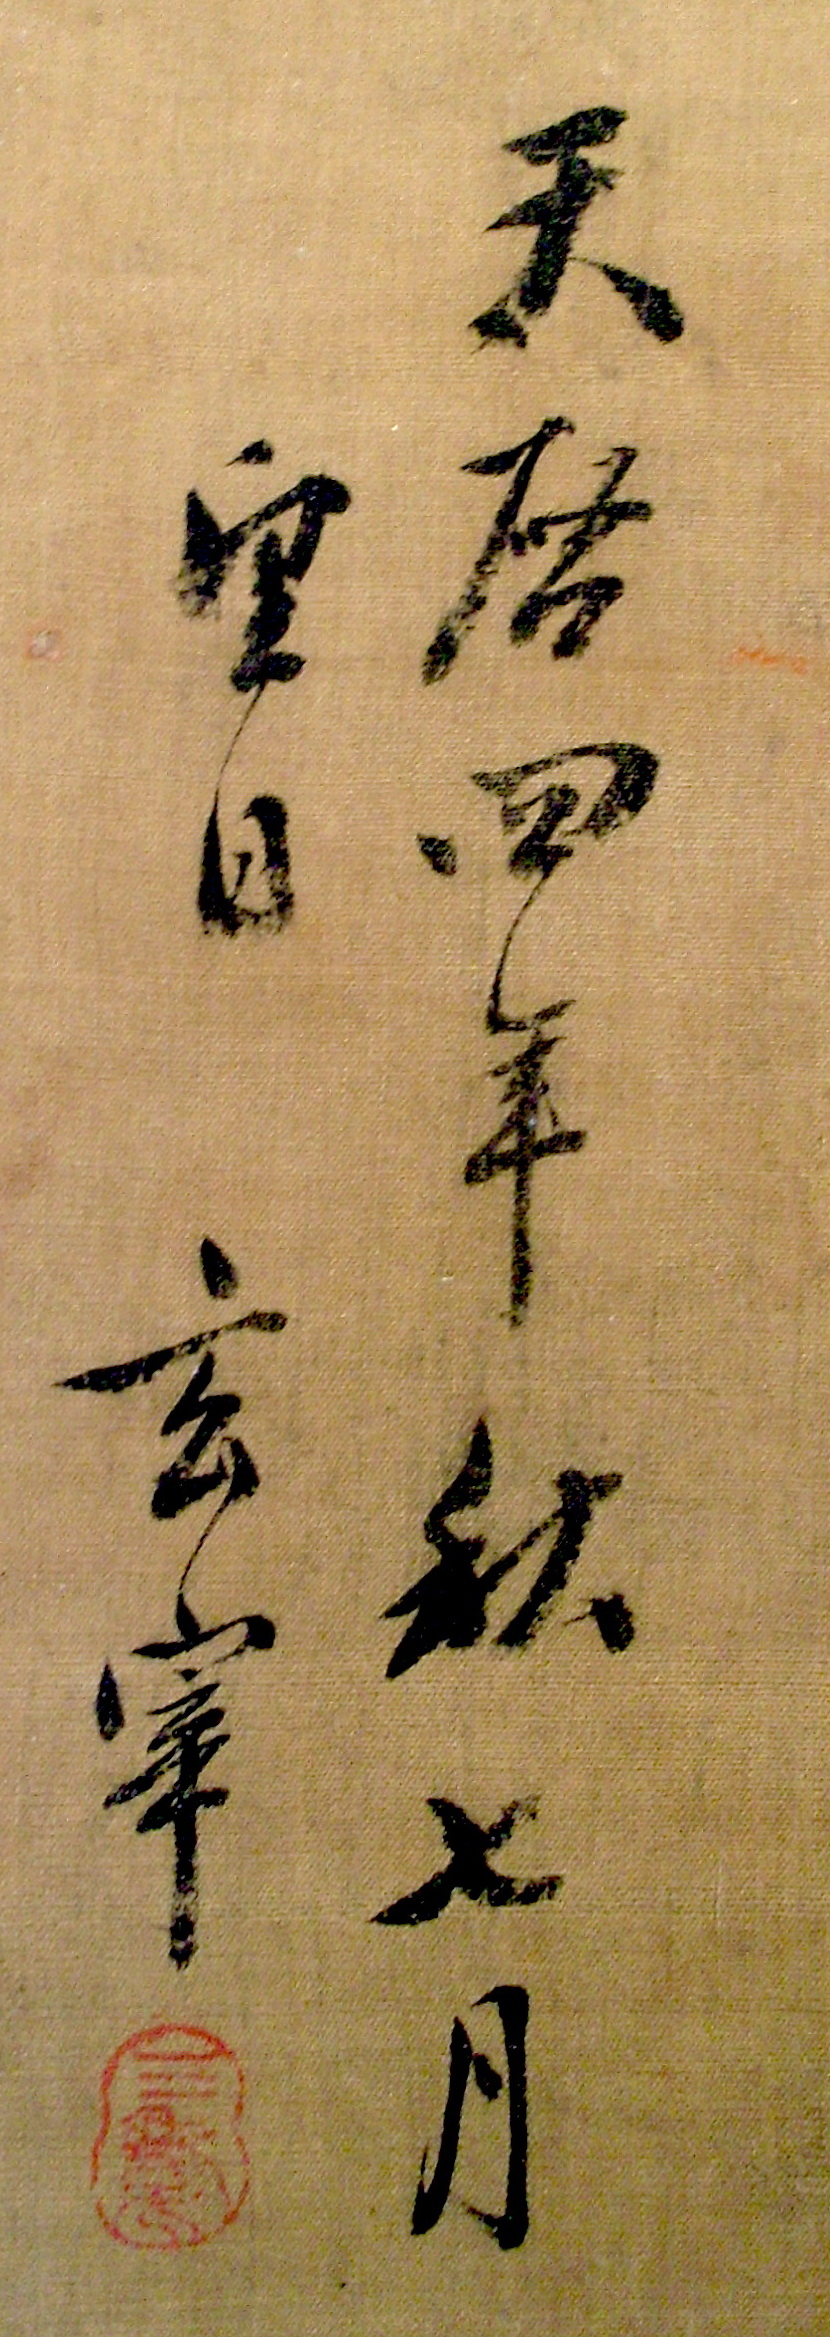 天啓四年秋七月
日 玄宰